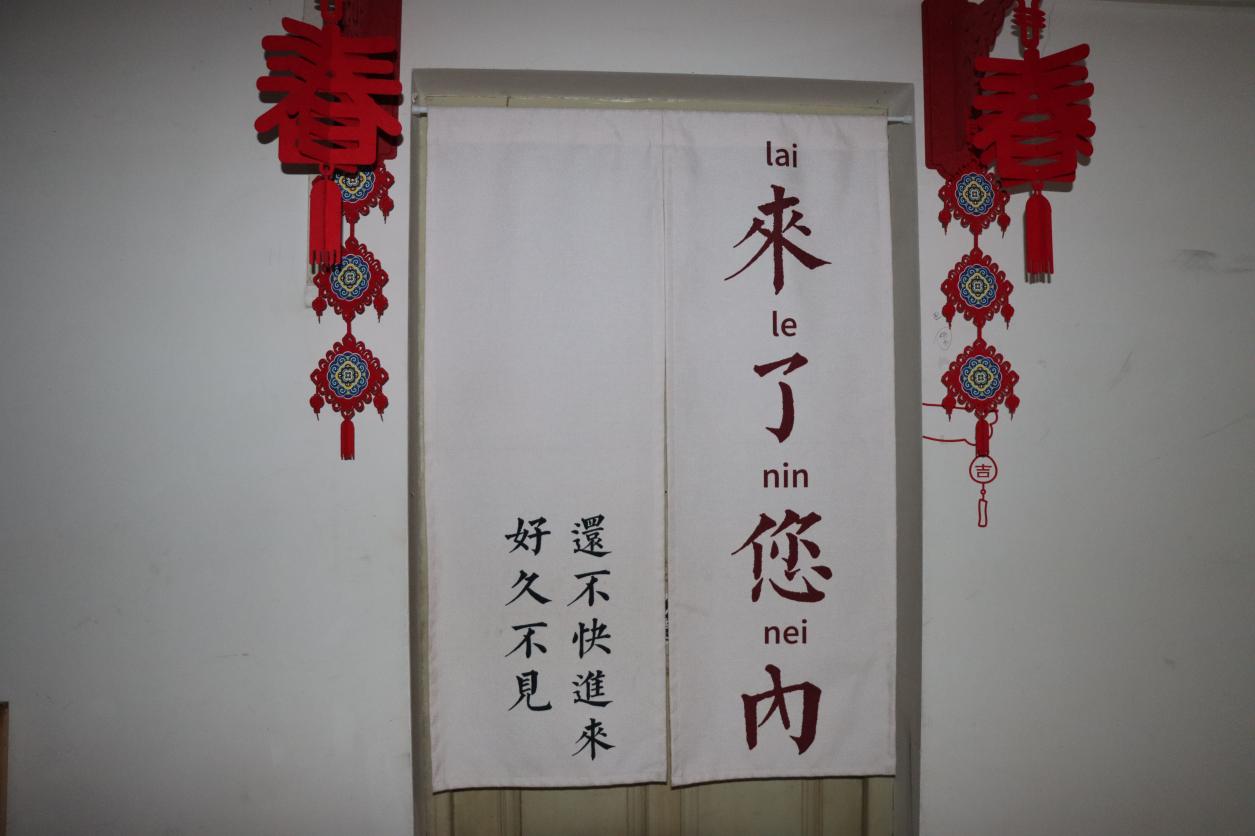 lai
來
le
了
nin
您
nei
內
還不快進來
好久不見
春
春
吉